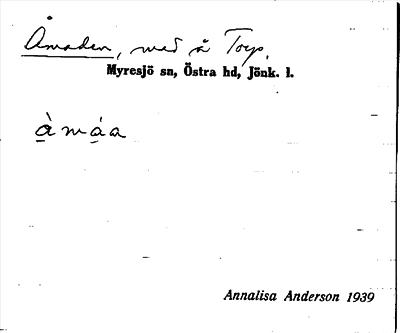 Åmaden, med å Torp.
Myresjö sn, Östra hd, Jönk. l.
à̱ m á̱ a
Annalisa Anderson 1939